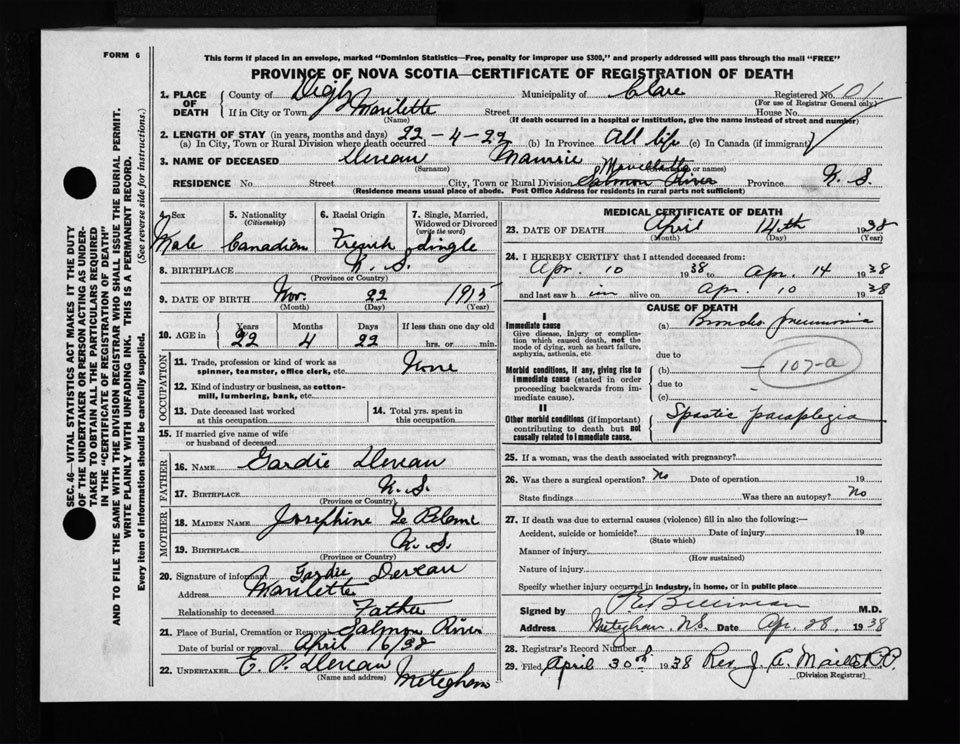 FORM 6
This form if placed in an envelope, marked "Dominion Statistics—Free, penalty for improper use $300," and properly addressed will pass through the mail "FREE"
PROVINCE OF NOVA SCOTIA—CERTIFICATE OF REGISTRATION OF DEATH
1. PLACE OF DEATH County of Digby Municipality of Clare Registered No. 101
(For use of Registrar General only)
If in City or Town Street House No.
(Name) (If death occurred in a hospital or institution, give the name instead of street and number)
2. LENGTH OF STAY (in years, months and days)
(a) In City, Town or Rural Division where death occurred 22-4-22 (b) In Province All life (c) In Canada (if immigrant)
3. NAME OF DECEASED
(Surname)
RESIDENCE No. Street City, Town or Rural Division Salmon River Province N.S.
(Residence means usual place of abode. Post Office Address for residents in rural parts not sufficient)
4. Sex Male
5. Nationality (Citizenship) Canadian
6. Racial Origin French
7. Single, Married, Widowed or Divorced (write the word) Single
8. BIRTHPLACE N.S.
(Province or Country)
9. DATE OF BIRTH Nov. 22 1915
(Month) (Day) (Year)
10. AGE in Years 22 Months 4 Days 22 If less than one day old hrs. or min.
OCCUPATION
11. Trade, profession or kind of work as spinner, teamster, office clerk, etc. None
12. Kind of industry or business, as cotton-mill, lumbering, bank, etc.
13. Date deceased last worked at this occupation
14. Total yrs. spent in this occupation
15. If married give name of wife or husband of deceased
FATHER
16. NAME
17. BIRTHPLACE N.S.
(Province or Country)
MOTHER
18. MAIDEN NAME Josephine
19. BIRTHPLACE N.S.
(Province or Country)
20. Signature of informant
Address
Relationship to deceased Father
21. Place of Burial, Cremation or Removal Salmon River
Date of burial or removal April 16/38
22. UNDERTAKER E. P. Meteghan
(Name and address)
MEDICAL CERTIFICATE OF DEATH
23. DATE OF DEATH April 14th 1938
(Month) (Day) (Year)
24. I HEREBY CERTIFY that I attended deceased from:
Apr. 10 1938 to Apr. 14 1938
and last saw him alive on Apr. 10 1938
CAUSE OF DEATH
I
Immediate cause
Give disease, injury or complication which caused death, not the mode of dying, such as heart failure, asphyxia, asthenia, etc
(a) Broncho pneumonia
due to
Morbid conditions, if any, giving rise to immediate cause (stated in order proceeding backwards from immediate cause).
(b) 107-a
due to
(c)
II
Other morbid conditions (if important) contributing to death but not causally related to immediate cause.
Spastic paraplegia
25. If a woman, was the death associated with pregnancy?
26. Was there a surgical operation? No Date of operation 19
State findings Was there an autopsy? No
27. If death was due to external causes (violence) fill in also the following:—
Accident, suicide or homicide? Date of injury 19
(State which)
Manner of injury
(How sustained)
Nature of injury
Specify whether injury occurred in industry, in home, or in public place
Signed by M.D.
Address Meteghan, N.S. Date Apr. 26, 1938
28. Registrar's Record Number
29. Filed April 30th 1938 Rev. J. A. P.P.
(Division Registrar)
SEC. 46—VITAL STATISTICS ACT MAKES IT THE DUTY
OF THE UNDERTAKER OR PERSON ACTING AS UNDER-
TAKER TO OBTAIN ALL THE PARTICULARS REQUIRED
IN THE "CERTIFICATE OF REGISTRATION OF DEATH"
AND TO FILE THE SAME WITH THE DIVISION REGISTRAR WHO SHALL ISSUE THE BURIAL PERMIT.
WRITE PLAINLY WITH UNFADING INK. THIS IS A PERMANENT RECORD.
Every item of information should be carefully supplied. (See reverse side for instructions.)